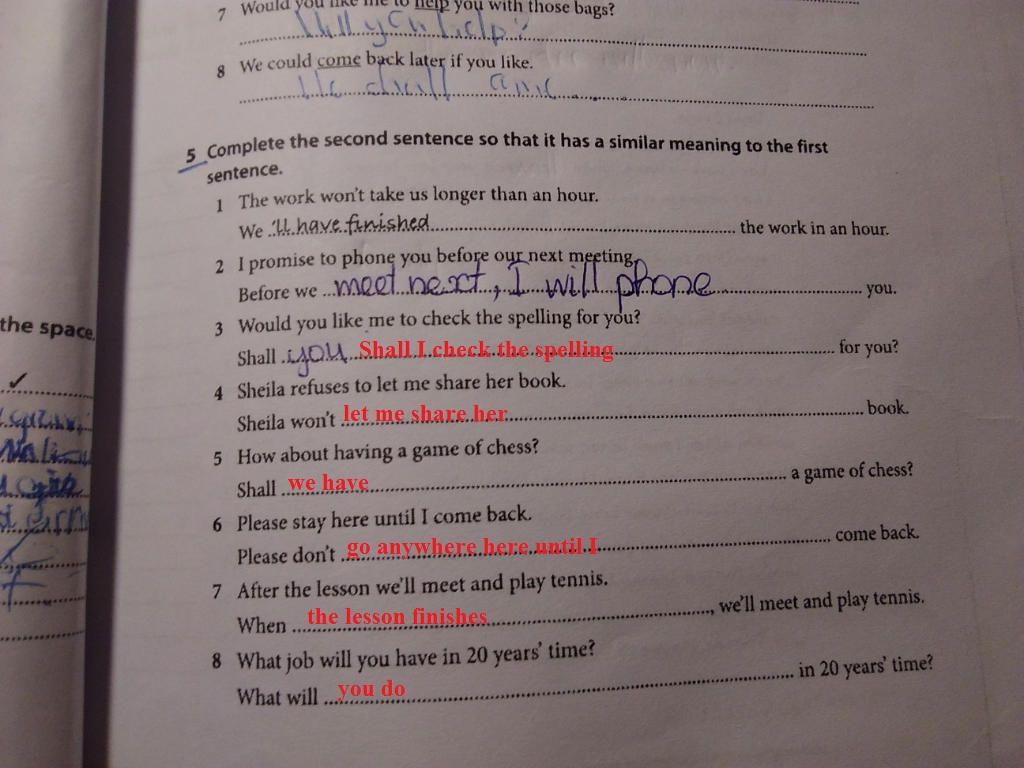 7 Would you like me to help you with those bags?
8 We could come back later if you like.
5 Complete the second sentence so that it has a similar meaning to the first
sentence.
1 The work won't take us longer than an hour.
We 'll have finished the work in an hour.
2 I promise to phone you before our next meeting.
Before we meet next, I will phone you.
3 Would you like me to check the spelling for you?
the space.
Shall you Shall I check the spelling for you?
4 Sheila refuses to let me share her book.
Sheila won't let me share her book.
5 How about having a game of chess?
Shall we have a game of chess?
6 Please stay here until I come back.
Please don't go anywhere here until I come back.
7 After the lesson we'll meet and play tennis.
When the lesson finishes, we'll meet and play tennis.
8 What job will you have in 20 years' time?
What will you do in 20 years' time?